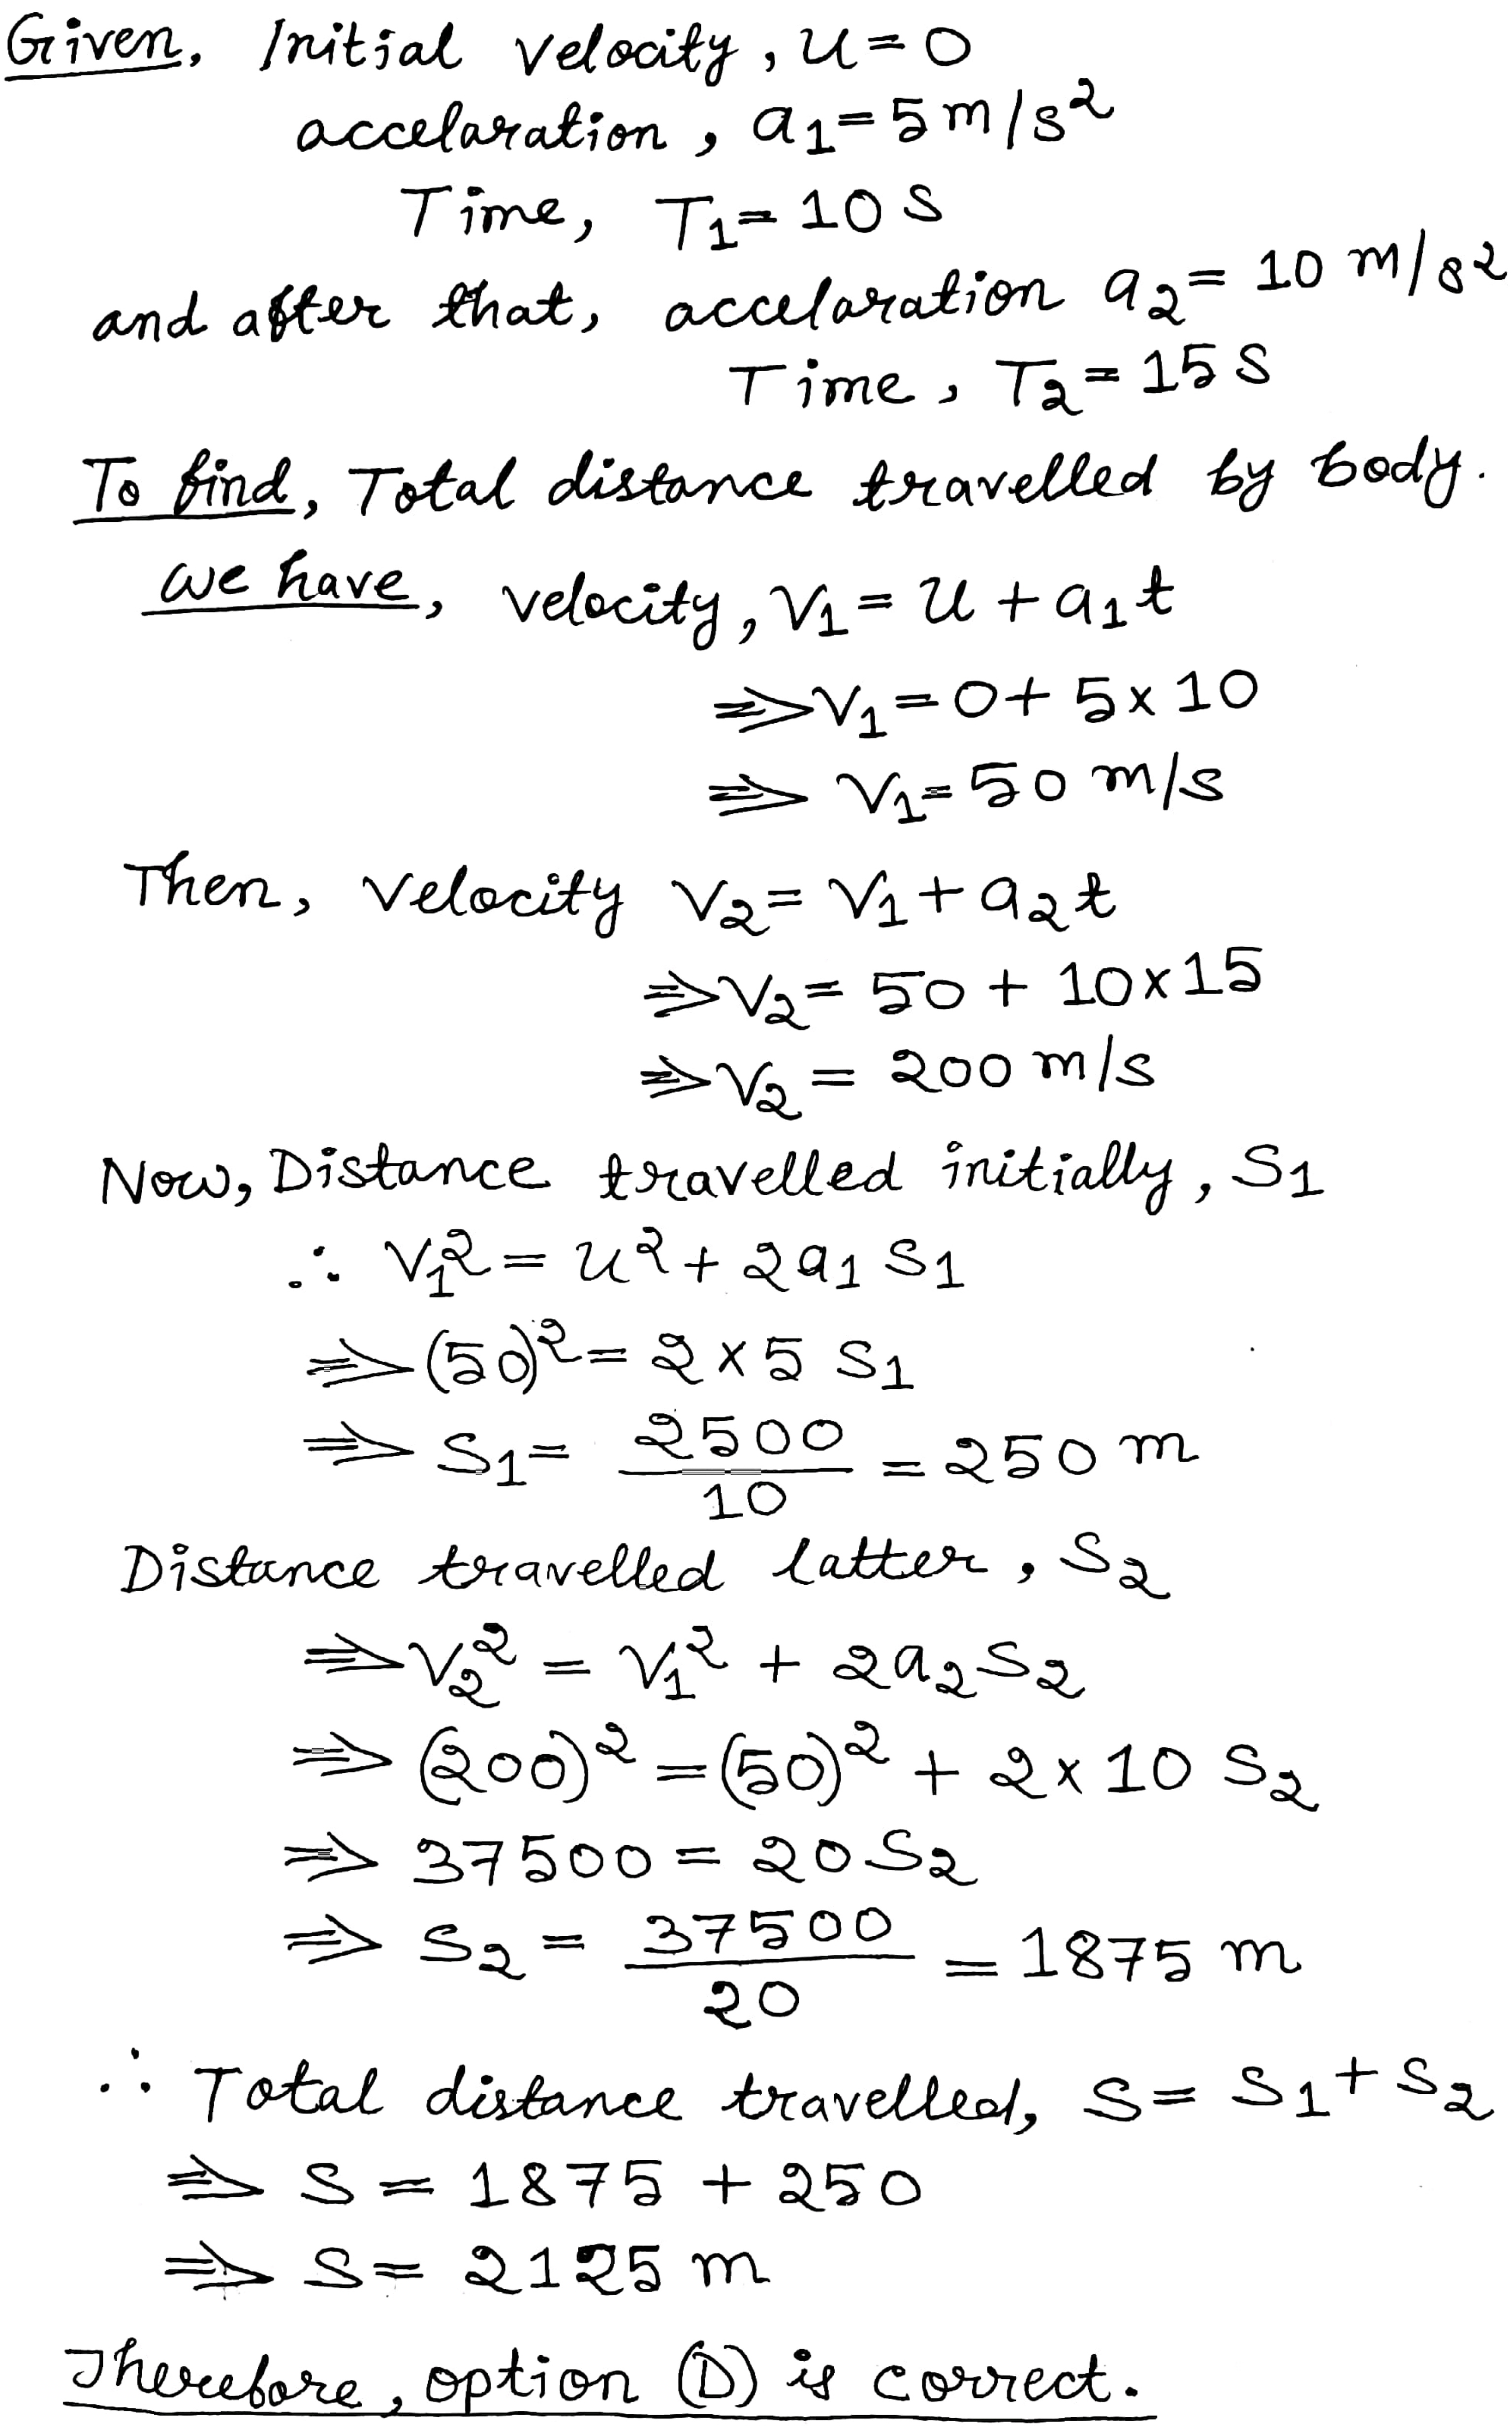 Given, Initial velocity, u = 0
accelaration, a₁ = 5 m/s²
Time, T₁ = 10 S
and after that, accelaration a₂ = 10 m/s²
Time, T₂ = 15 S
To find, Total distance travelled by body.
we have, velocity, V₁ = u + a₁t
⇒ V₁ = 0 + 5 x 10
⇒ V₁ = 50 m/s
Then, velocity V₂ = V₁ + a₂t
⇒ V₂ = 50 + 10 x 15
⇒ V₂ = 200 m/s
Now, Distance travelled initially, S₁
∴ V₁² = u² + 2a₁ S₁
⇒ (50)² = 2 x 5 S₁
⇒ S₁ = 2500/10 = 250 m
Distance travelled latter, S₂
⇒ V₂² = V₁² + 2a₂S₂
⇒ (200)² = (50)² + 2 x 10 S₂
⇒ 37500 = 20 S₂
⇒ S₂ = 37500/20 = 1875 m
∴ Total distance travelled, S = S₁ + S₂
⇒ S = 1875 + 250
⇒ S = 2125 m
Therefore, option (D) is correct.